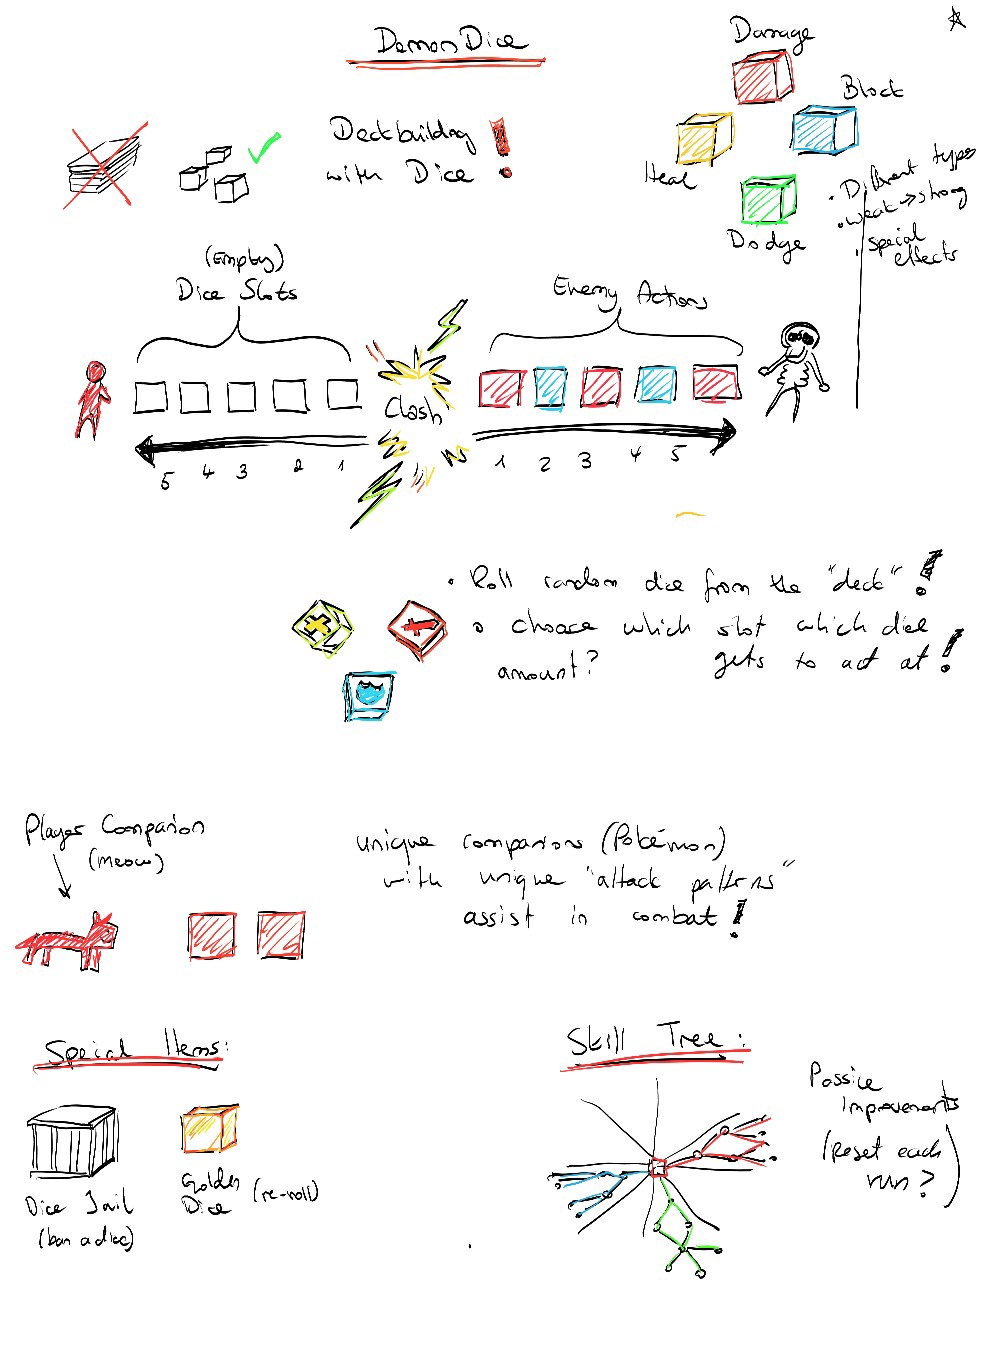 Demon Dice
Deckbuilding !
with Dice
Damage
Block
Heal
Dodge
• Different types
• weak → strong
• special
effects
(Empty)
Dice Slots
Enemy Actions
Clash
5 4 3 2 1
1 2 3 4 5
• Roll random dice from the "deck" !
• choose which slot which dice
amount? gets to act at !
Player Companion
(meow)
unique companions (Pokémon)
with unique "attack patterns"
assist in combat !
Special Items:
Dice Jail
(ban a dice)
Golden
Dice (re-roll)
Skill Tree:
Passive
Improvements
(Reset each
run?)